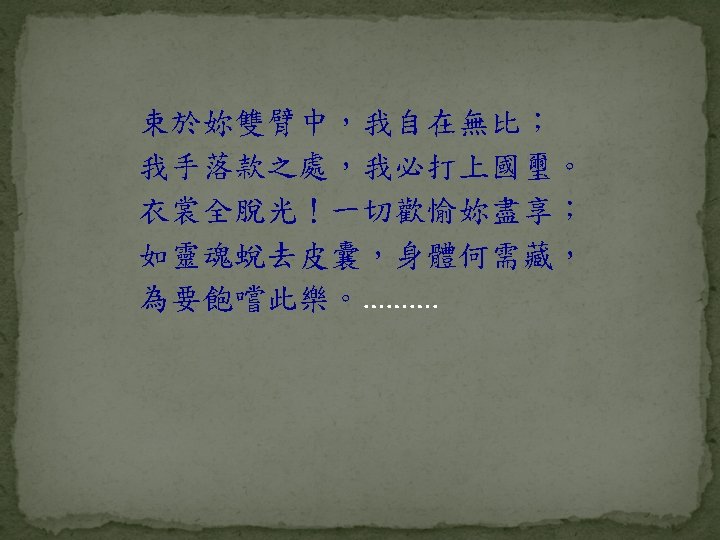 束於妳雙臂中，我自在無比；
我手落款之處，我必打上國璽。
衣裳全脫光！一切歡愉妳盡享；
如靈魂蛻去皮囊，身體何需藏，
為要飽嚐此樂。..........